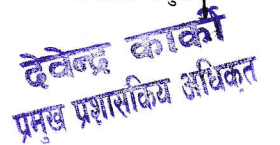 देवेन्द्र कार्की
प्रमुख प्रशासकिय अधिकृत